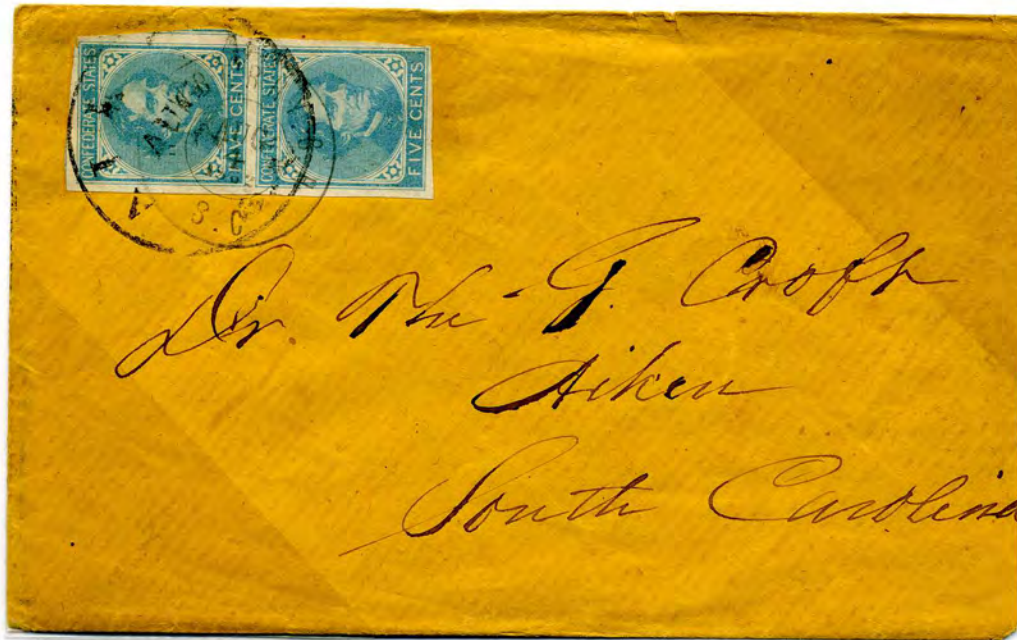 CONFEDERATE STATES
FIVE CENTS
CONFEDERATE STATES
FIVE CENTS
Dr J. Croft
Aiken
South Carolina